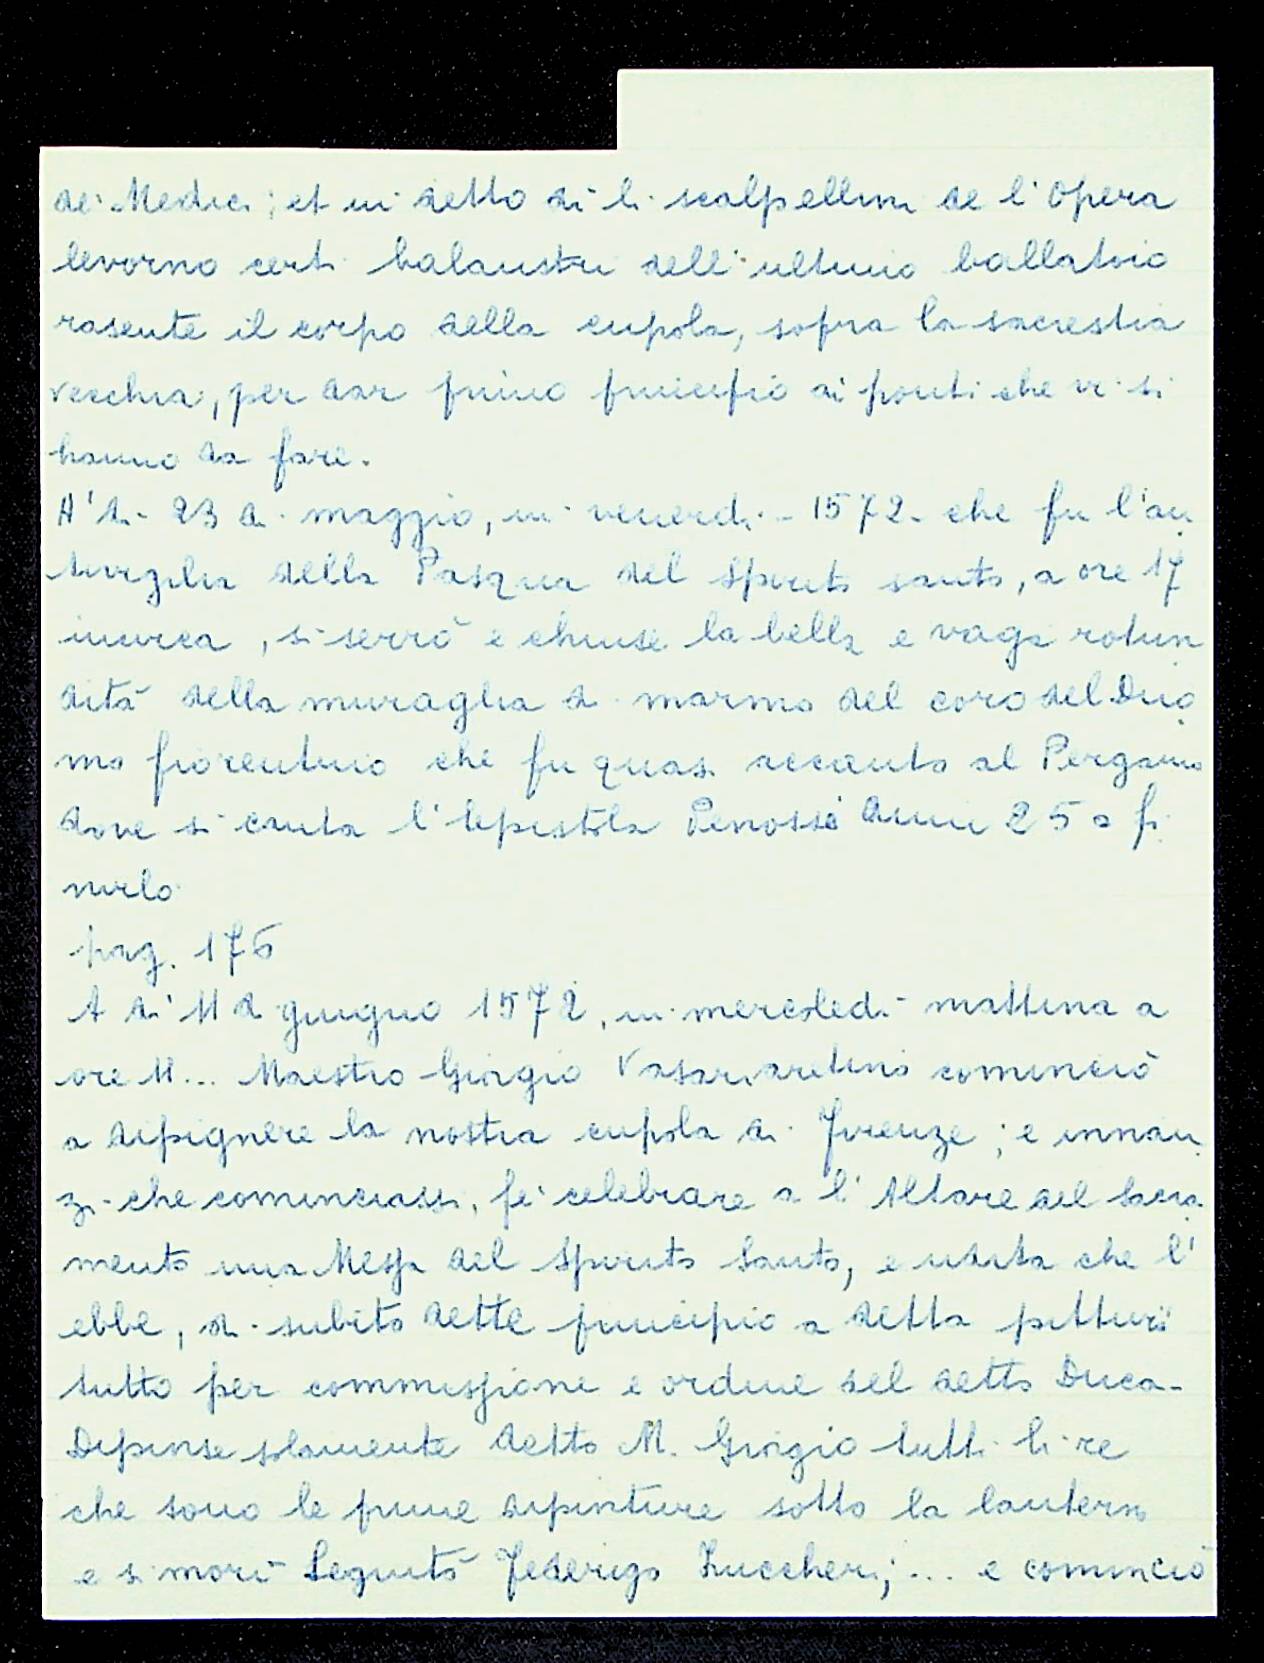 de' Medici; et in detto dì li scalpellini de l'Opera
levorno certi balaustri dell'ultimo ballatoio
rasente il corpo della cupola, sopra la sacrestia
vecchia, per dar primo principio ai ponti che vi si
hanno da fare.
A' dì 23 di maggio, in venerdì - 1572 - che fu l'an
tivigilia della Pasqua del Spirito santo, a ore 17
incirca, si serrò e chiuse la bella e vaga rotun
dità della muraglia di marmo del coro del Duo
mo fiorentino che fu quasi accanto al Pergamo
dove si canta l'Epistola Penossi anni 25 a fi
nirlo
pag. 176
A dì 11 di giugno 1572, in mercoledì mattina a
ore 11... Maestro Giorgio Vasari aretino cominciò
a dipignere la nostra cupola di Firenze; e innan
zi che cominciassi, fe' celebrare a l'Altare del Sacra
mento una Messa del Spirito Santo, e udita che l'
ebbe, di subito dette principio a detta pittura
tutto per commessione e ordine del detto Duca -
Dipinse solamente detto M. Giorgio tutti li re
che sono le prime dipinture sotto la lanterna
e si morì Seguitò Federigo Zuccheri; ... e cominciò